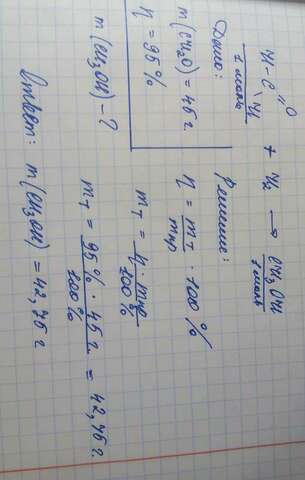 H-C=O\H + H₂ → CH₃OH
1 моль 1 моль
Дано:
m(CH₂O) = 45 г.
η = 95%
m(CH₃OH) - ?
Решение:
η = mт / mпр · 100 %
mт = η · mпр / 100%
mт = 95% · 45 г / 100% = 42,75 г.
Ответ: m(CH₃OH) = 42,75 г.